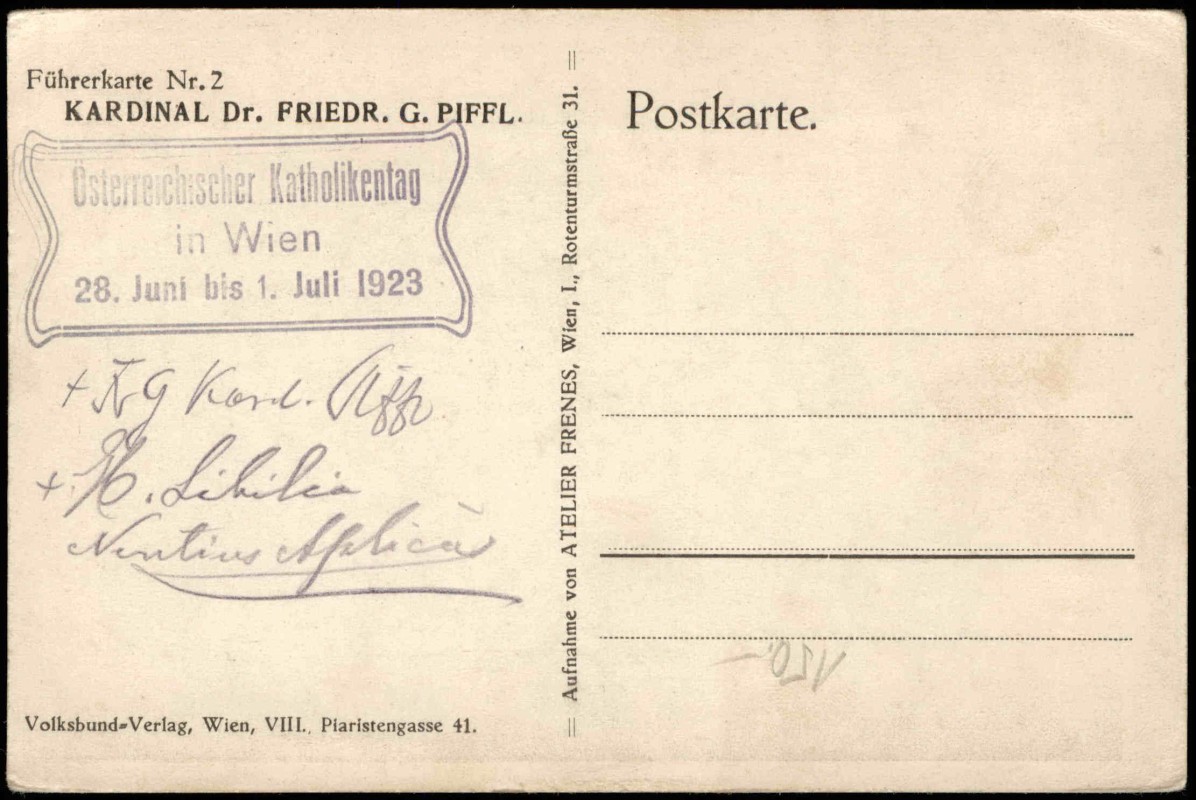 Führerkarte Nr. 2
KARDINAL Dr. FRIEDR. G. PIFFL.
Österreichischer Katholikentag
in Wien
28. Juni bis 1. Juli 1923
+ F G Kard. Piffl
+ H. Sibilia
Nuntius Aplicus
Volksbund-Verlag, Wien, VIII., Piaristengasse 41.
Aufnahme von ATELIER FRENES, Wien, I., Rotenturmstraße 31.
Postkarte.
150.-